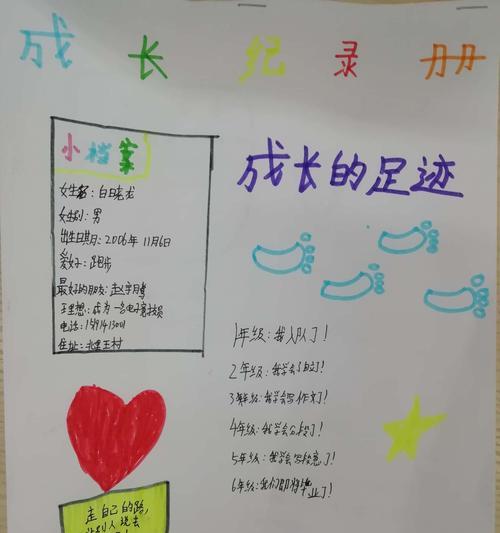 成长纪录册
小档案
成长的足迹
性别:男
出生日期:2006年11月6日
爱好:跑步
最好的朋友:赵宇
理想:成为一名电子竞技员
电话:
住址:北里王村
1年级:我入队了!
2年级:我学会
3年级:我学会写作文了!
4年级:我学会分段了!
5年级:我学会写段意了!
6年级:我们即将毕业了!
走自己的路,
让别人说去